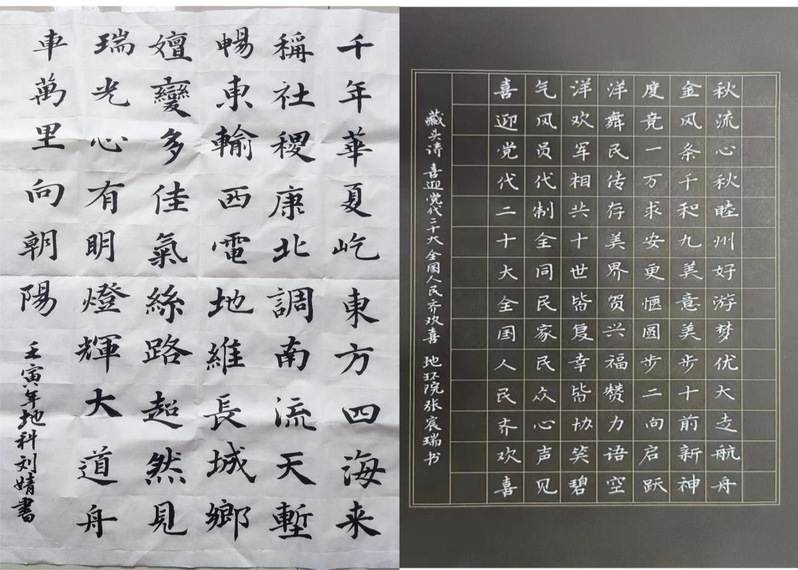 千年華夏屹東方四海来
稱社稷康北調南流天塹
暢東輸西電地維長城鄉
嬗變多佳氣絲路超然見
瑞光心有明燈輝大道舟
車萬里向朝陽
壬寅年地科刘婧書
喜气洋洋度金秋
迎风欢舞竞风流
党员军民一条心
代代相传万千秋
二制共存求和睦
十全十美安九州
大同世界更美好
全民皆贺惬意游
国家复兴圆美梦
人民幸福步步优
民众皆赞二十大
齐心协力向前走
欢声笑语启新航
喜见碧空跃神舟
藏头诗 喜迎党代二十大 全国人民齐欢喜 地环院张宸瑞书